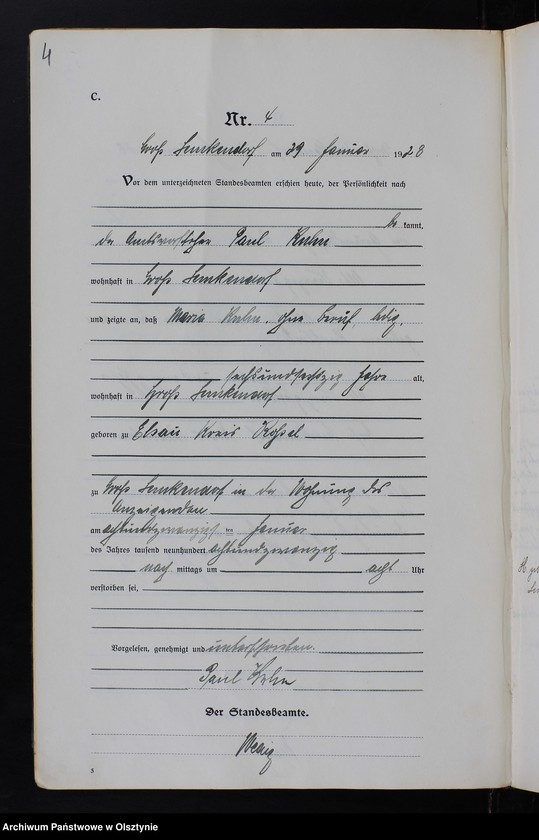 4
C.
Nr. 4
Groß Lemkendorf am 29 Januar 1928
Vor dem unterzeichneten Standesbeamten erschien heute, der Persönlichkeit nach
be kannt,
de Amtsvorsteher Paul
wohnhaft in Groß Lemkendorf
und zeigte an, daß Maria ohne Beruf, ledig,
sechsundsechzig Jahre alt,
wohnhaft in Groß Lemkendorf
geboren zu Elsau Kreis Rößel
zu Groß Lemkendorf in der Wohnung des
Anzeigenden
am achtundzwanzigst en Januar
des Jahres tausend neunhundert achtundzwanzig
nach mittags um acht Uhr
verstorben sei,
Vorgelesen, genehmigt und unterschrieben.
Paul
Der Standesbeamte.
5
Archiwum Państwowe w Olsztynie